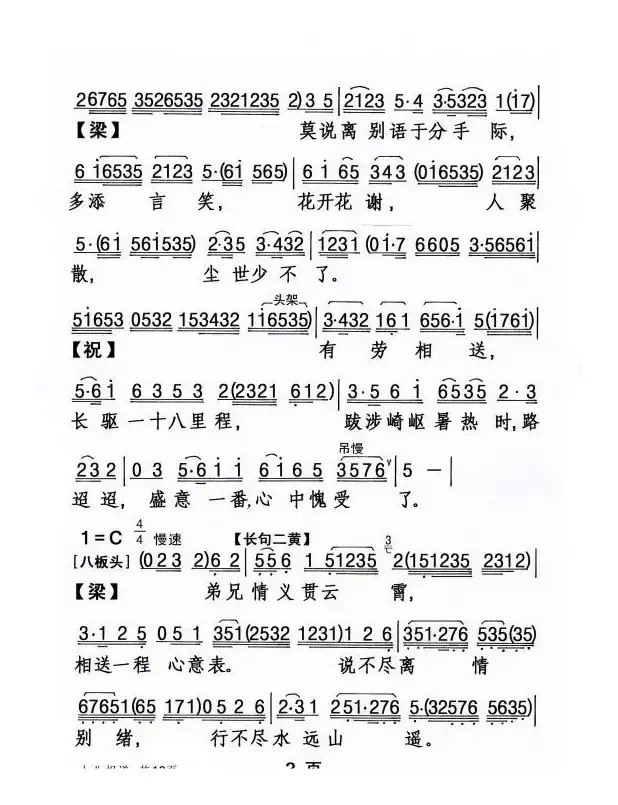 26765 3526535 2321235 2)3 5|2123 5·4 3·5323 1(17)
【梁】 莫说离 别语于分手 际,
6 16535 2123 5·(61 565)|6 165 343 (016535) 2123|
多添 言 笑, 花开花 谢, 人 聚
5·(61 561535) 2·35 3·432|1231 (01·7 6605 3·56561|
散, 尘 世少 不 了。
头架
51653 0532 153432 116535)|3·432 161 656·1 5(1761)|
【祝】 有 劳 相 送,
5·61 6 3 5 3 2(2321 612)|3·5 6 1 6535 2·3
长 驱 一十八里程, 跋涉崎岖 暑 热 时,路
吊慢
232|0 3 5·611 6165 3576|5 -|
迢迢, 盛意 一番,心 中愧受 了。
1=C 4/4 慢速 【长句二黄】
[八板头](023 2)62|556 1 51235 2(151235 2312)|
【梁】 弟兄 情 义 贯云 霄,
3·1 2 5 0 5 1 351(2532 1231)126|351·276 535(35)
相送一程 心意表。 说不尽离 情
67651(65 171)0526|2·31 2 251·276 5·(32576 5635)|
别 绪, 行不尽水 远山 遥。
2 页